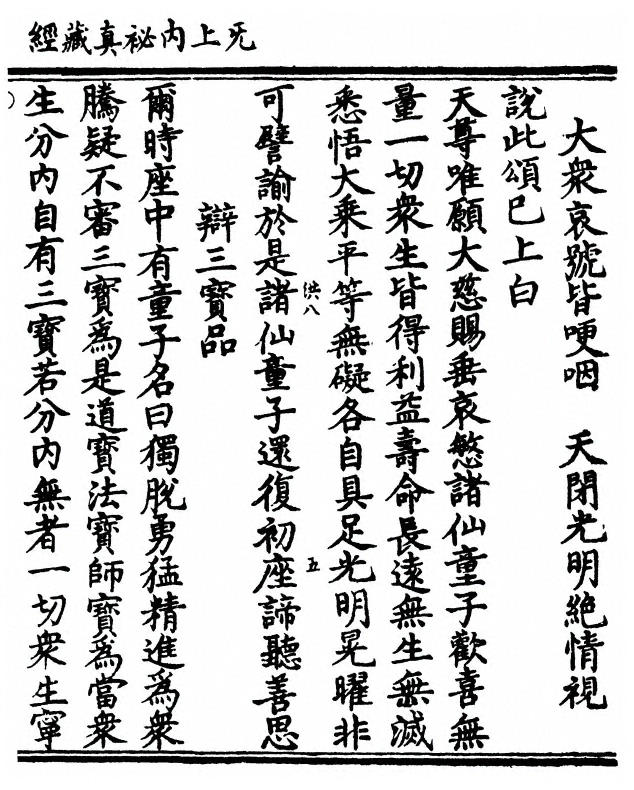 經藏真祕內上旡
大衆哀號皆哽咽　天閉光明絶情視
說此頌已上白
天尊唯願大慈賜垂哀愍諸仙童子歡喜無
量一切衆生皆得利益壽命長遠無生無滅
悉悟大乘平等無礙各自具足光明晃曜非
洪八
五
可譬諭於是諸仙童子還復初座諦聽善思
辯三寶品
爾時座中有童子名曰獨脫勇猛精進爲衆
騰疑不審三寶爲是道寶法寶師寶爲當衆
生分內自有三寶若分內無者一切衆生寧